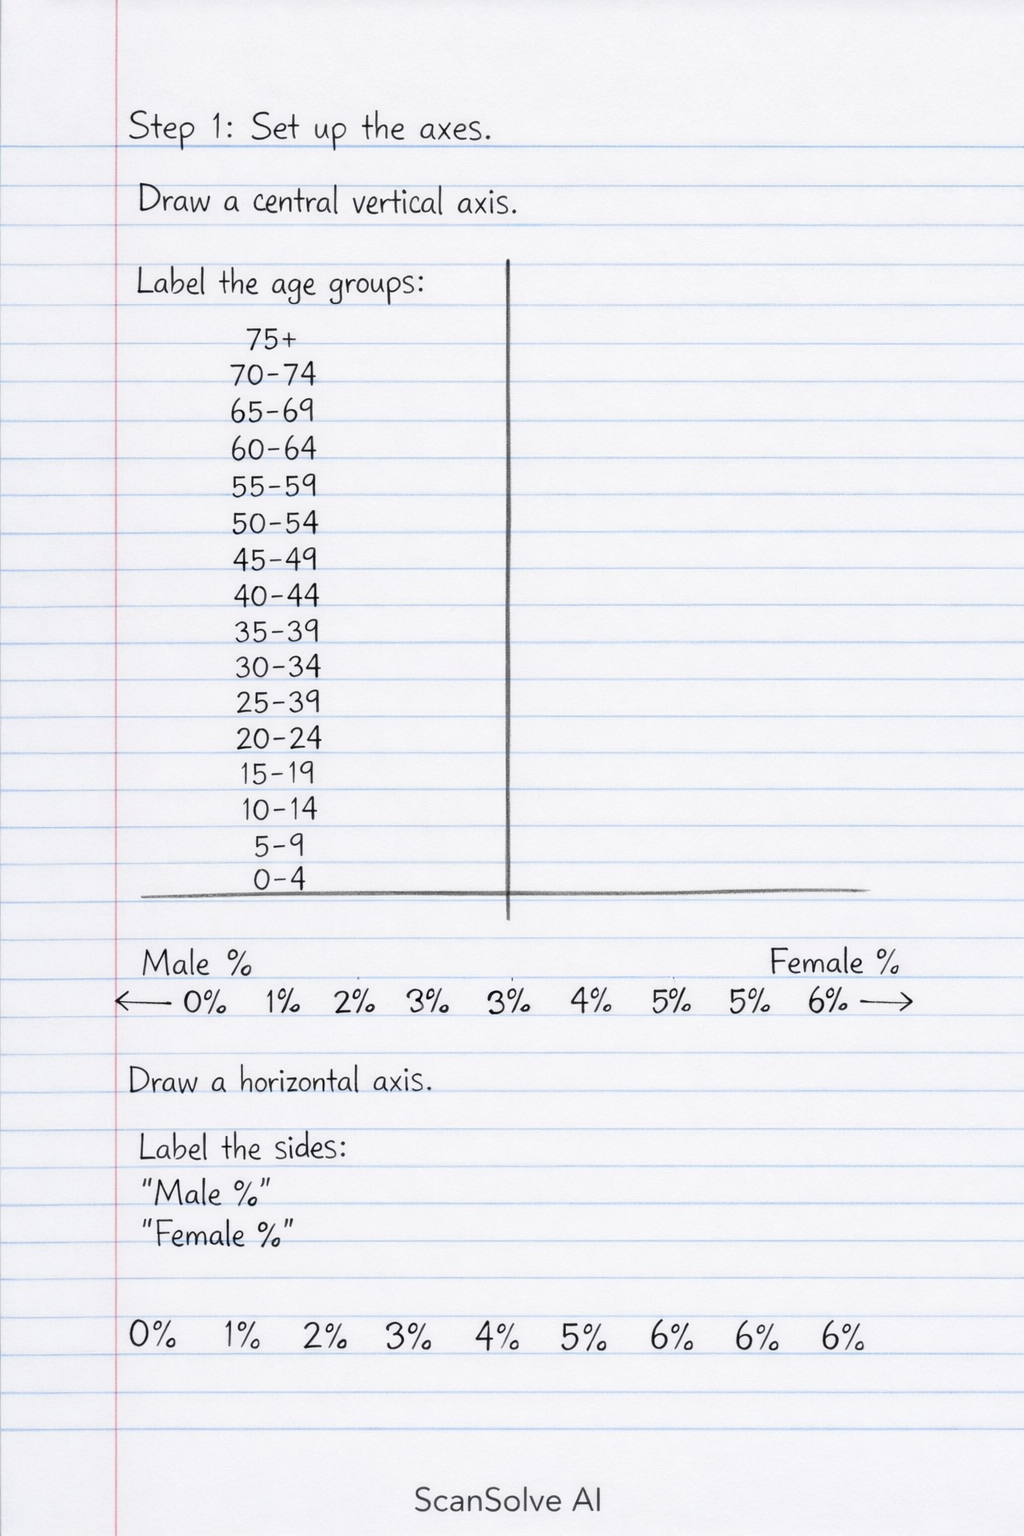 Step 1: Set up the axes.
Draw a central vertical axis.
Label the age groups:
75+
70-74
65-69
60-64
55-59
50-54
45-49
40-44
35-39
30-34
25-39
20-24
15-19
10-14
5-9
0-4
Male % Female %
← 0% 1% 2% 3% 3% 4% 5% 5% 6% →
Draw a horizontal axis.
Label the sides:
"Male %"
"Female %"
0% 1% 2% 3% 4% 5% 6% 6% 6%
ScanSolve AI